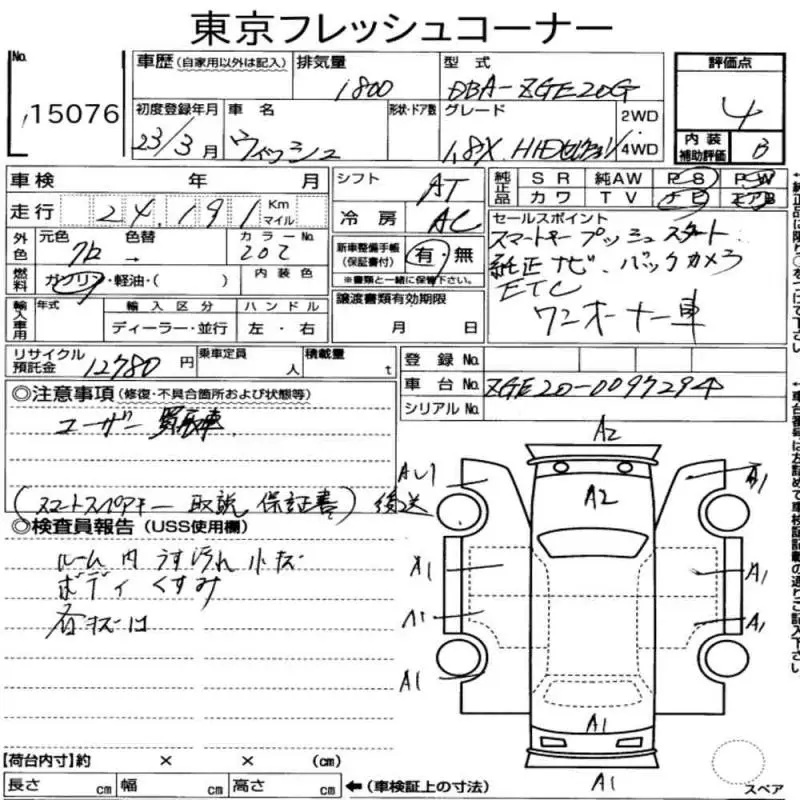 東京フレッシュコーナー
No.
15076
車歴 (自家用以外は記入)
排気量
1800
型式
DBA-ZGE20G
評価点
4
初度登録年月
23/3月
車名
ウィッシュ
形状・ドア数
グレード
1.8X HID
2WD
4WD
内装
補助評価
B
車検 年 月
シフト
AT
純正品
SR 純AW PS PW
カワ TV ナビ エアB
走行 24,191 Km マイル
冷房
AC
セールスポイント
スマートキー プッシュスタート
純正ナビ・バックカメラ
ETC
ワンオーナー車
外色
元色
クロ
色替
→
カラーNo.
202
新車整備手帳
(保証書付)
有・無
※書類と一緒に保管下さい。
燃料
ガソリン・軽油・( )
内装色
輸入車用
年式
輸入区分
ハンドル
ディーラー・並行
左・右
譲渡書類有効期限
月 日
リサイクル
預託金
12780円
乗車定員
人
積載量
t
登録No.
車台No.
ZGE20-0097294
シリアルNo.
◎注意事項 (修復・不具合箇所および状態等)
ユーザー買取車
(スマートスペアキー 取説 保証書) 後送
◎検査員報告 (USS使用欄)
ルーム内 うすヨゴレ 小キズ
ボディ くすみ
各キズ凹
A2
A2
A1
A1
A1
A1
A1
A1
A1
A1
スペア
【荷台内寸】約 × × (cm)
長さ cm 幅 cm 高さ cm
←(車検証上の寸法)